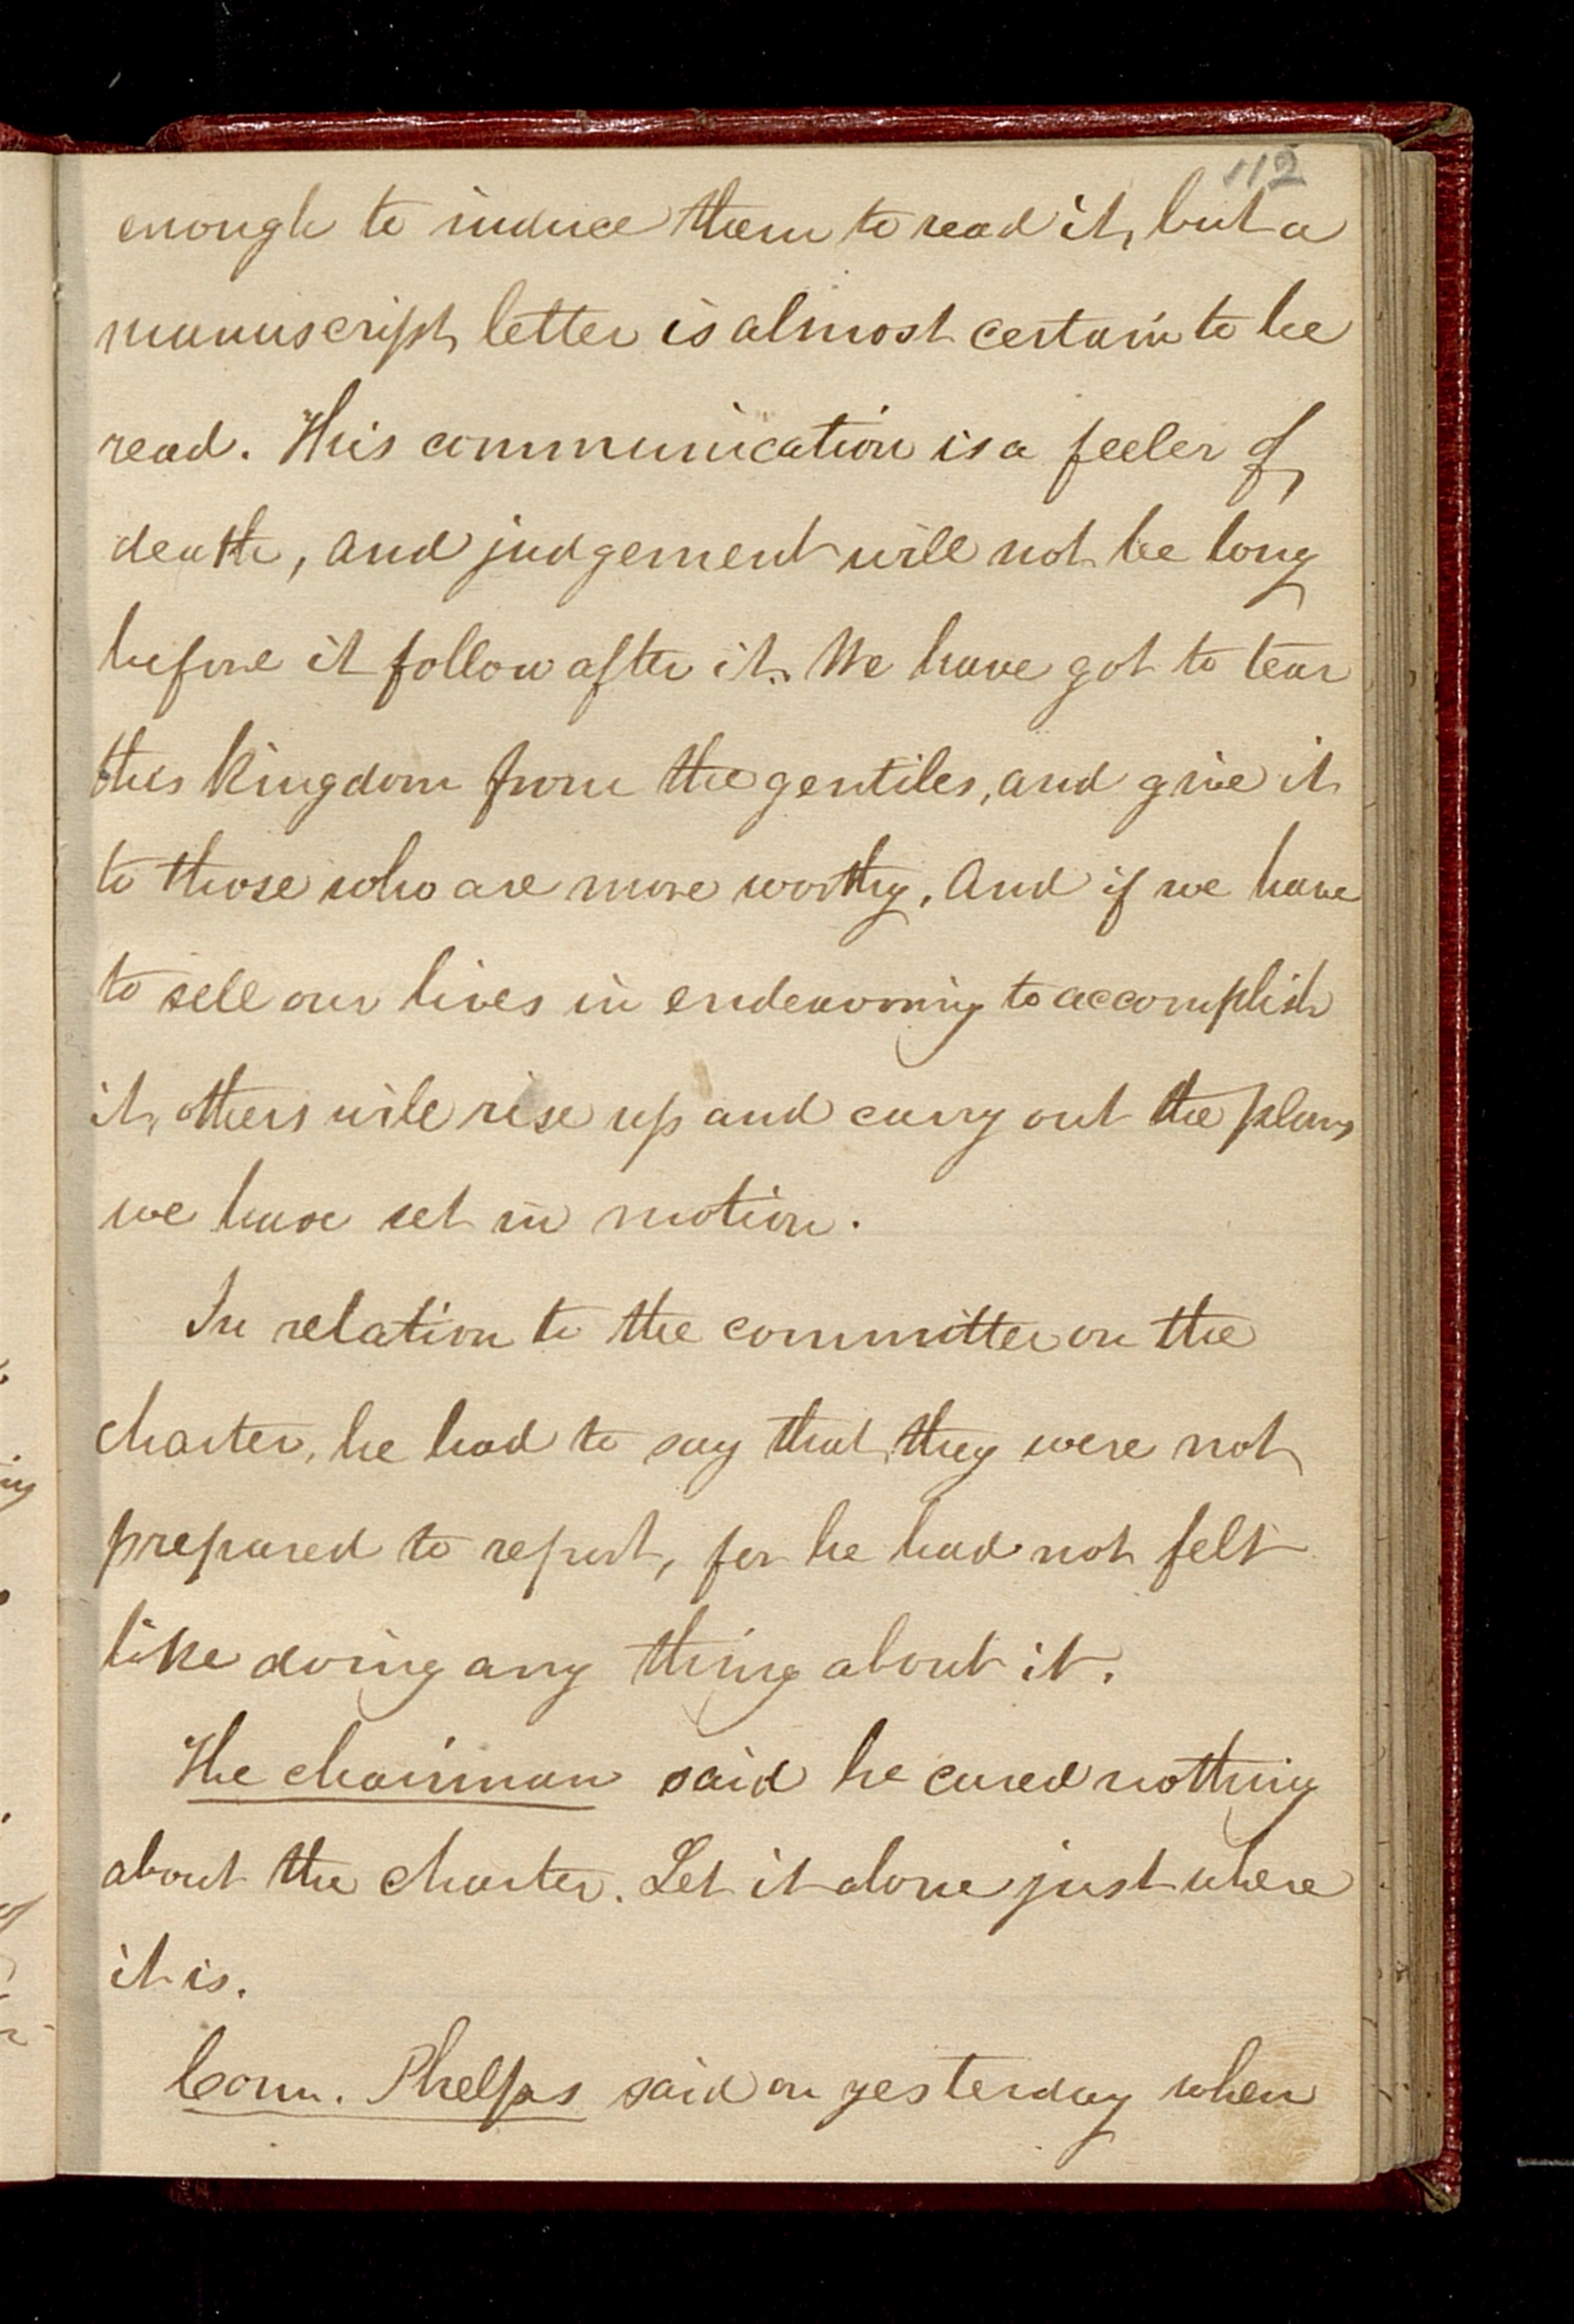 112
enough to induce them to read it, but a
manuscript letter is almost certain to be
read. This communication is a feeler of
death, and judgement will not be long
before it follow after it. We have got to tear
this kingdom from the gentiles, and give it
to those who are more worthy. And if we have
to sell our lives in endeavoring to accomplish
it, others will rise up and carry out the plans
we have set in motion.
In relation to the committee on the
charter, he had to say that they were not
prepared to report, for he had not felt
like doing any thing about it.
The chairman said he cared nothing
about the charter. Let it alone just where
it is.
Com. Phelps said on yesterday when